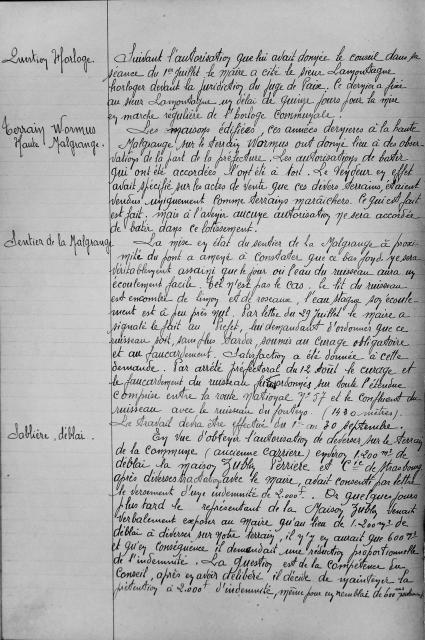 Question Horloge.
Suivant l'autorisation que lui avait donnée le conseil dans sa
séance du 1er Juillet le maire a cité le sieur Lamontagne
horloger devant la juridiction du Juge de Paix. Ce dernier a fixé
au sieur Lamontagne un délai de quinze jours pour la mise
en marche régulière de l'horloge communale.
Terrain Wormus
Haute Malgrange.
Les maisons édifiées, ces années dernières à la haute
Malgrange sur le terrain Wormus ont donné lieu à des obser-
vations de la part de la préfecture. Les autorisations de bâtir
qui ont été accordées l'ont été à tort. Le vendeur en effet
avait spécifié sur les actes de vente que ces divers terrains étaient
vendus uniquement comme terrains maraîchers. Ce qui est fait
est fait. mais à l'avenir aucune autorisation ne sera accordée
de bâtir dans ce lotissement.
Sentier de la Malgrange
La mise en état du sentier de la Malgrange à proxi-
mité du pont a amené à constater que ce bas fond ne sera
véritablement assaini que le jour où l'eau du ruisseau aura un
écoulement facile. Tel n'est pas le cas. Le lit du ruisseau
est encombré de limon et de roseaux, l'eau stagne son écoule-
ment est à peu près nul. Par lettre du 29 Juillet le maire a
signalé le fait au Préfet, lui demandant d'ordonner que ce
ruisseau soit, sans plus tarder, soumis au curage obligatoire
et au faucardement. Satisfaction a été donnée à cette
demande. Par arrêté préfectoral du 12 Août le curage et
le faucardement du ruisseau ordonnés sur toute l'étendue
comprise entre la route National N° 57 et le confluent du
ruisseau avec le ruisseau du (1430 mètres).
Le travail devra être effectué du 1er au 30 septembre.
Sablière, déblai.
En vue d'obtenir l'autorisation de déverser sur le terrain
de la commune (ancienne carrière) environ 1200 m3 de
déblai la maison Zublin Perrière et Cie de Strasbourg
après diverses avec le maire, avait consenti par lettre
le versement d'une indemnité de 2.000f. Or quelques jours
plus tard le représentant de la Maison Zublin venait
verbalement exposer au maire qu'au lieu de 1.200 m3 de
déblai à diverser sur notre terrain, il n'y en aurait que 600 m3
et qu'en conséquence il demandait une réduction proportionnelle
de l'indemnité. La question est de la compétence du
Conseil, après en avoir délibéré il décide de maintenir la
prétention à 2.000f d'indemnité, même pour un remblai de 600 m3